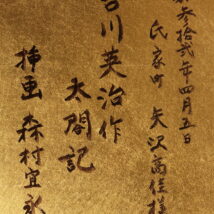 参拾弐年四月五日
氏家町 矢沢高佳様
吉川英治作
太閤記
挿画 森村宜永